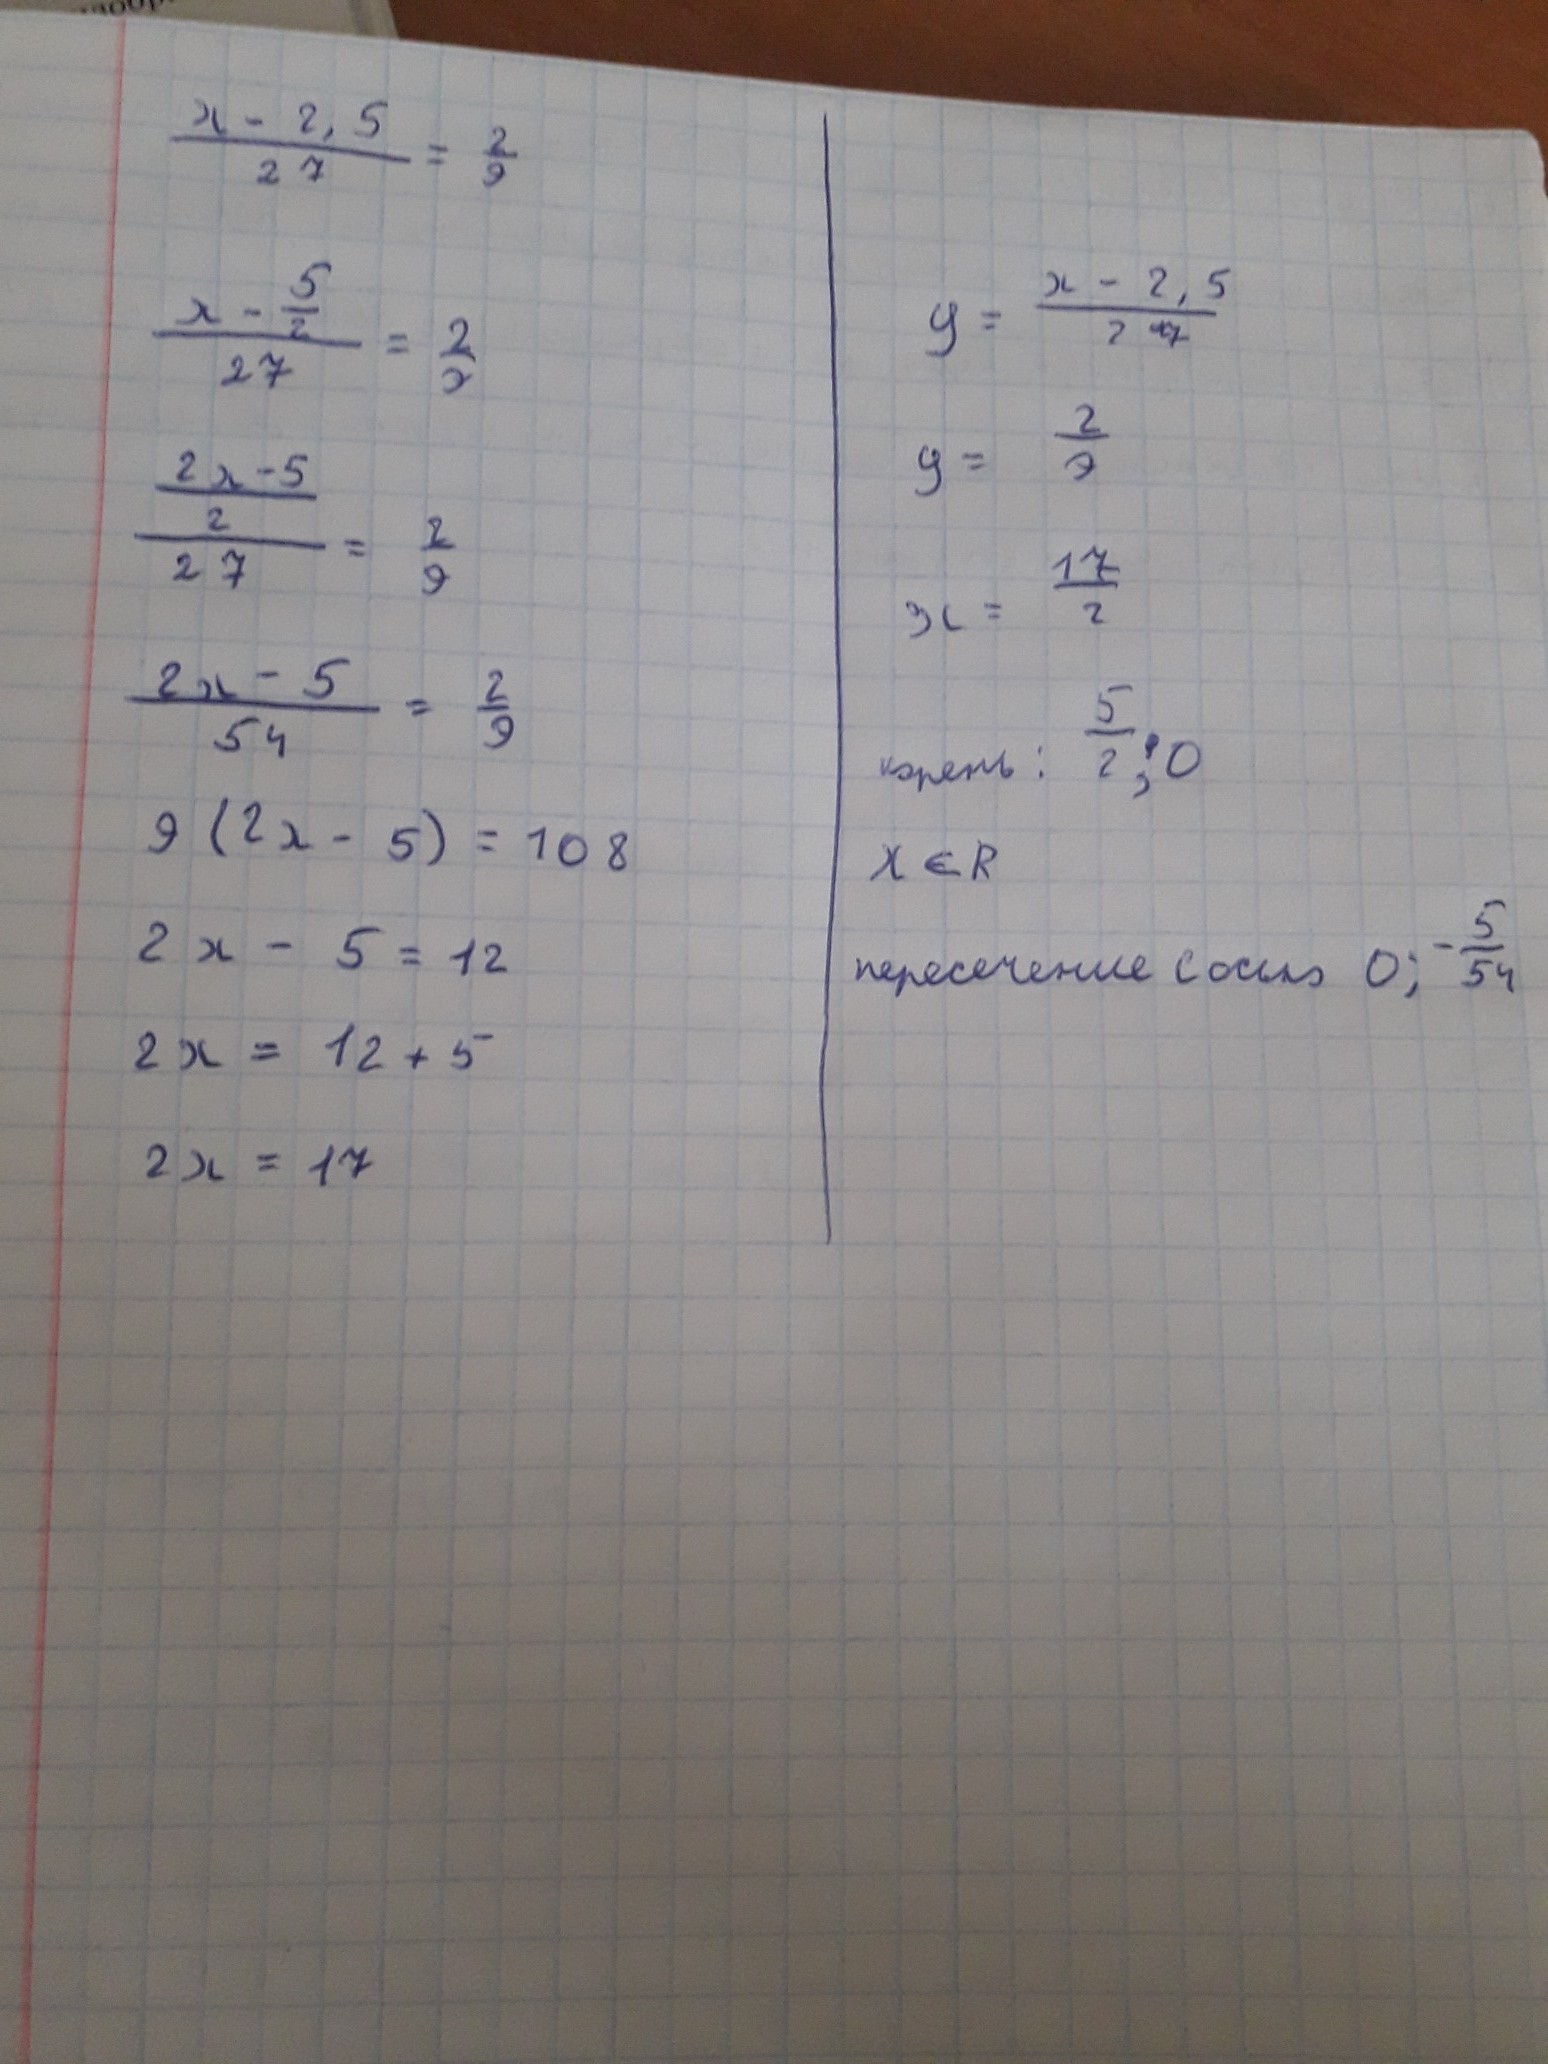 x - 2,5 / 27 = 2/9
x - 5/2 / 27 = 2/9
2x - 5 / 2 / 27 = 2/9
2x - 5 / 54 = 2/9
9 (2x - 5) = 108
2x - 5 = 12
2x = 12 + 5
2x = 17
y = x - 2,5 / 27
y = 2/9
x = 17/2
корень: 5/2 ; 0
x ∈ R
пересечение с осью 0; -5/54